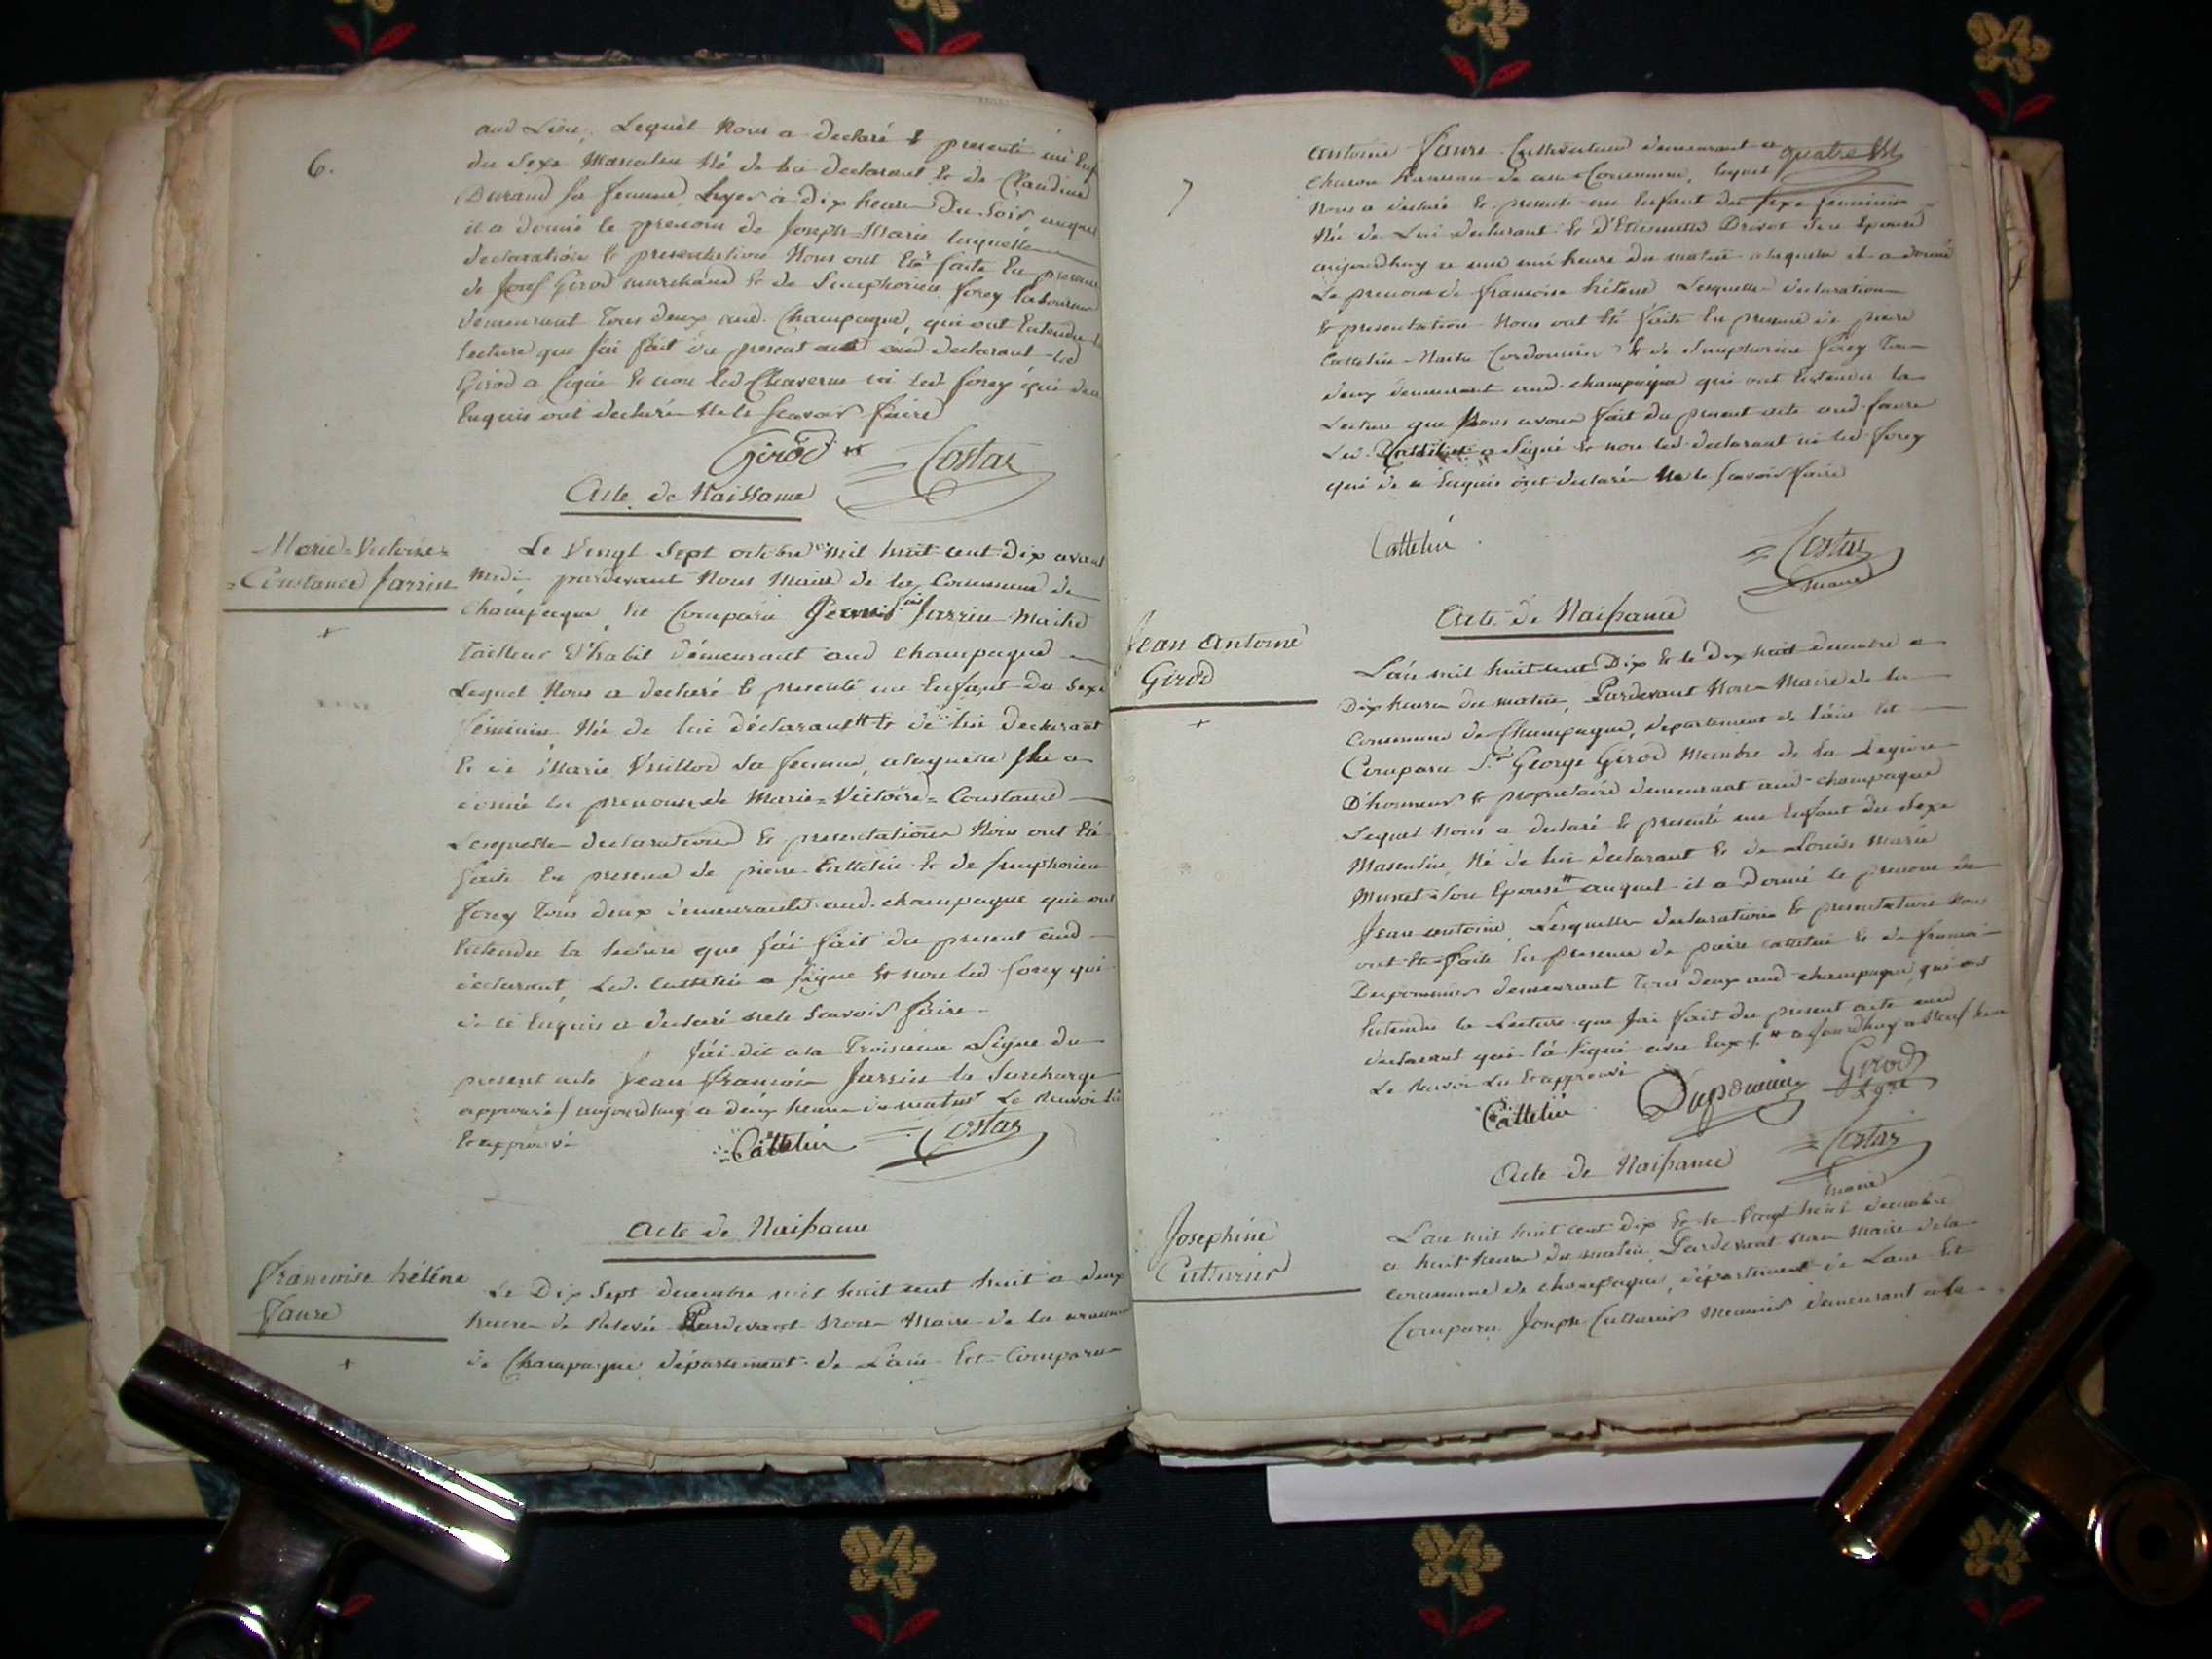 6.
aud Lieu, Lequel Nous a declaré & presenté un Enf
du Sexe Masculin Né de lui declarant & de Claudine
Durand sa femme, hyer a dix heures Du Soir, auquel
il a donné le prenom de Joseph=Marie lesquelles
declaration & presentation Nous ont Eté faite En presence
de Josef Girod marchand & de Simphorien forey laboureur
demeurant Tous deux aud. Champagne, qui ont Entendu la
lecture que J'ai fait du present acte aud declarant led
Girod a Signé & non led Chaverne ni led forey qui de ce
Enquis ont declaré Ne le Scavoir faire
Girod
Costaz
Acte de Naissance
Marie=Victoire=
=Constance Jarrin
Le Vingt Sept octobre mil huit cent Dix avant
Midi pardevant Nous Maire de la Commune de
Champagne, Est Comparu Jarrin Maitre
Tailleur D'habit demeurant aud champagne
Lequel Nous a declaré & presenté un Enfant du Sexe
féminin Né de lui déclarant & de lui declarant
& de Marie sa femme, a laquelle il a
donné les prenoms de Marie=Victoire=Constance
Lesquelles declaration & presentation Nous ont Eté
faite En presence de pierre Cattelin & de Simphorien
forey Tous deux demeurants aud. champagne qui ont
Entendu la lecture que J'ai fait du present aud
déclarant, Led. cattelin a signé & non led forey qui
de ce Enquis a declaré ne le Scavoir faire
J'ai dit a la Troisieme Ligne du
present acte Jean François Jarrin la Surcharge
approuvé / aujourdhuy a deux heures du matin Le Renvoi lu
& approuvé
Cattelin
Costaz
Acte de Naissance
françoise hélène
Faure
Le Dix Sept decembre mil huit cent huit a deux
heures de Relevée Pardevant Nous Maire de la commune
de Champagne département de L'ain Est Comparu
7
quatre
antoine Faure Cultivateur demeurant a
hameau de cette Commune, lequel
Nous a declaré & presenté un Enfant du Sexe feminin
Né de Lui declarant & d'Etiennette Drivet son Epouse
aujourdhuy a une heure du matin a laquelle il a donné
Le prenom de françoise héléne Lesquelles declaration
& presentation Nous ont Eté faite En presence de pierre
Cattelin Maitre Cordonnier & de Simphorien forey Tous
deux demeurant aud. champagne qui ont Entendu la
Lecture que Nous avons fait du present acte aud faure
Led. Cattelin a Signé & non led declarant ni led forey
qui de ce Enquis ont declaré Ne le Scavoir faire
Cattelin
Costaz
maire
Acte de Naissance
Jean Antoine
Girod
L'an mil huit cent Dix & le Dix huit decembre a
Dix heures du matin, Pardevant Nous Maire de la
commune de Champagne, departement de l'ain Est
Comparu Sr. George Girod Membre de la Legion
D'honneur & proprietaire demeurant aud champagne
Lequel Nous a declaré & presenté un Enfant du Sexe
Masculin, Né de lui declarant & de Louise Marie
Musset Son Epouse auquel il a Donné le prenom de
Jean antoine, Lesquelles declaration & presentation Nous
ont Eté faite En presence de pierre cattelin & de francois
Dupommier demeurant Tous deux aud champagne, qui ont
Entendu la Lecture que J'ai fait du present acte aud
declarant qui l'a Signé avec Eux / aujourdhuy a Neuf heures
Le Renvoi Lu & approuvé
Cattelin
Dupommier
Girod
Costaz
maire
Acte de Naissance
Josephine
Cutturier
L'an mil huit cent dix & le Vingt decembre
a huit heures du matin Pardevant nous Maire de la
commune de champagne, département de Lain Est
Comparu Joseph Cutturier Meunier demeurant a la